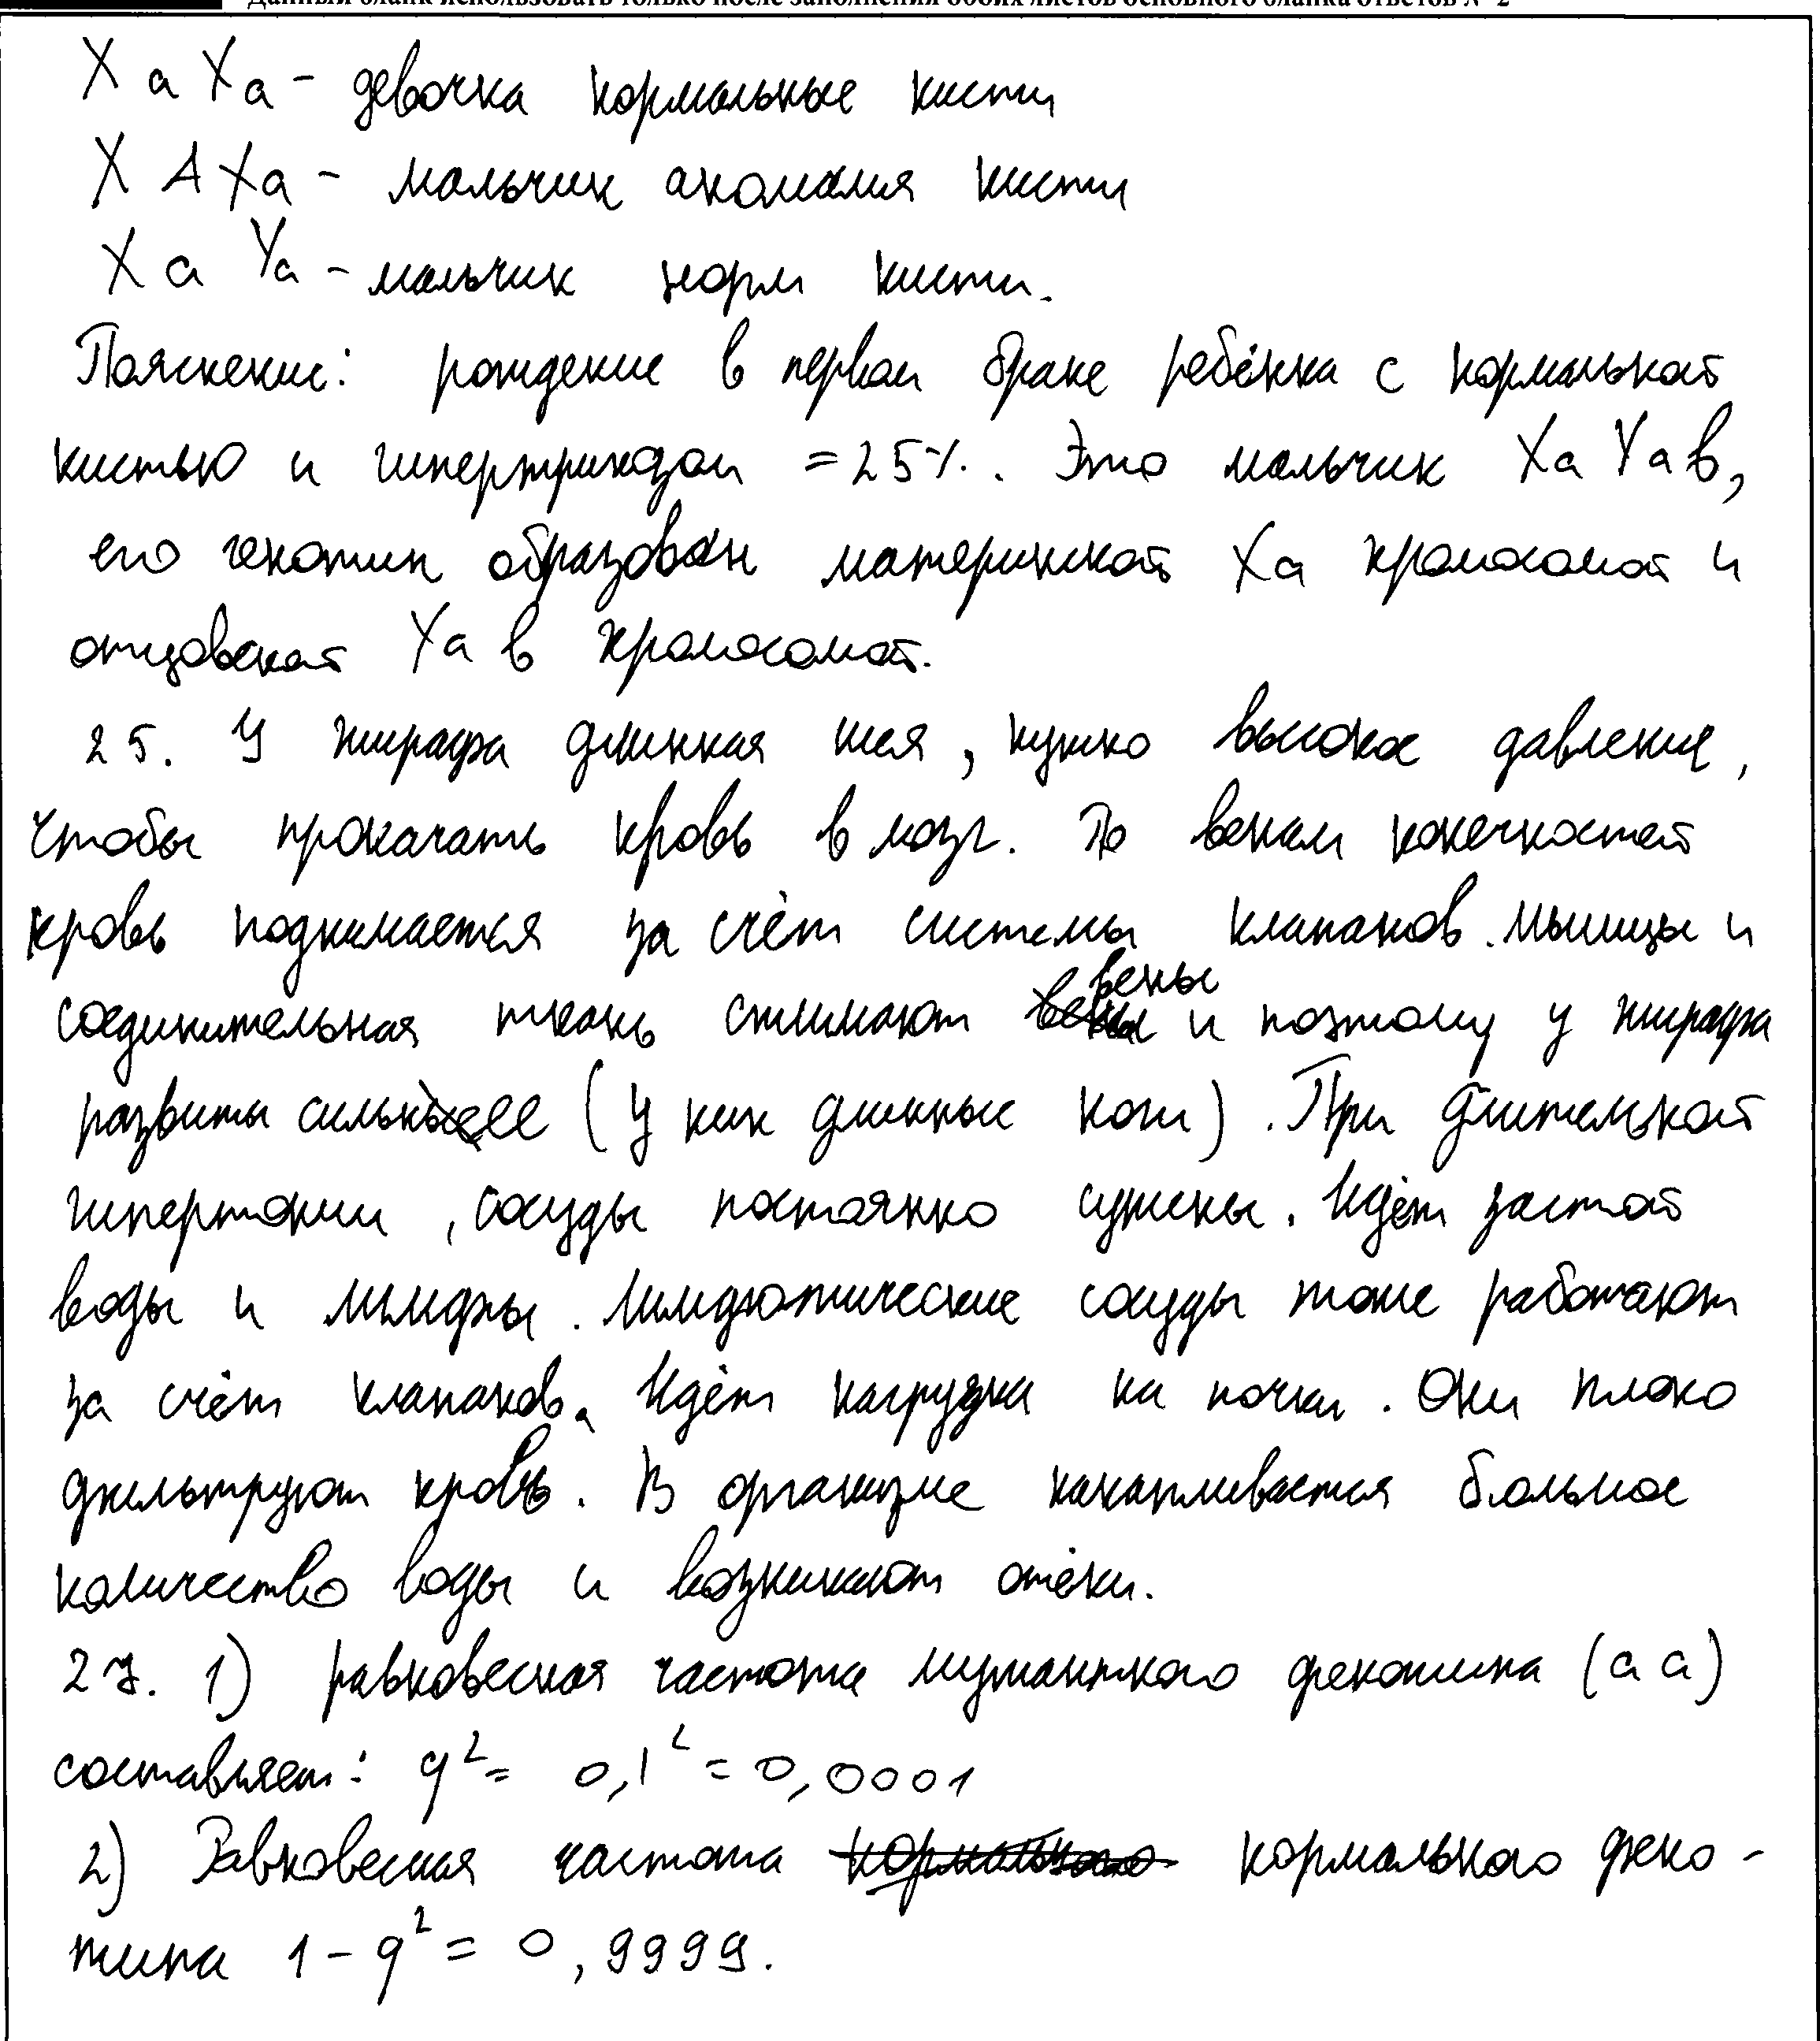 Данный бланк использовать только после заполнения обоих листов основного бланка ответов № 2
Xa Xa - девочка нормальные кисти
XA Xa - мальчик аномалия кисти
Xa Ya - мальчик норм кисти.
Пояснение: рождение в первом браке ребёнка с нормальной
кистью и гипертрихозом = 25%. Это мальчик Xa Yaв,
его генотип образован материнской Xa хромосомой и
отцовской Yaв хромосомой.
25. У жирафа длинная шея, нужно высокое давление,
чтобы прокачать кровь в мозг. По венам конечностей
кровь поднимается за счёт системы клапанов. Мышцы и
соединительная ткань сжимают вены и поэтому у жирафа
развиты сильнее (У них длинные ноги). При длительной
гипертонии, сосуды постоянно сужены. Идёт застой
воды и лимфы. Лимфотические сосуды тоже работают
за счёт клапанов. Идёт нагрузка на почки. Они плохо
фильтруют кровь. В организме накапливается большое
количество воды и возникают отёки.
27. 1) равновесная частота мутантного фенотипа (aa)
составляет: q² = 0,1² = 0,0001
2) Равновесная частота нормального фено-
типа 1 - q² = 0,9999.